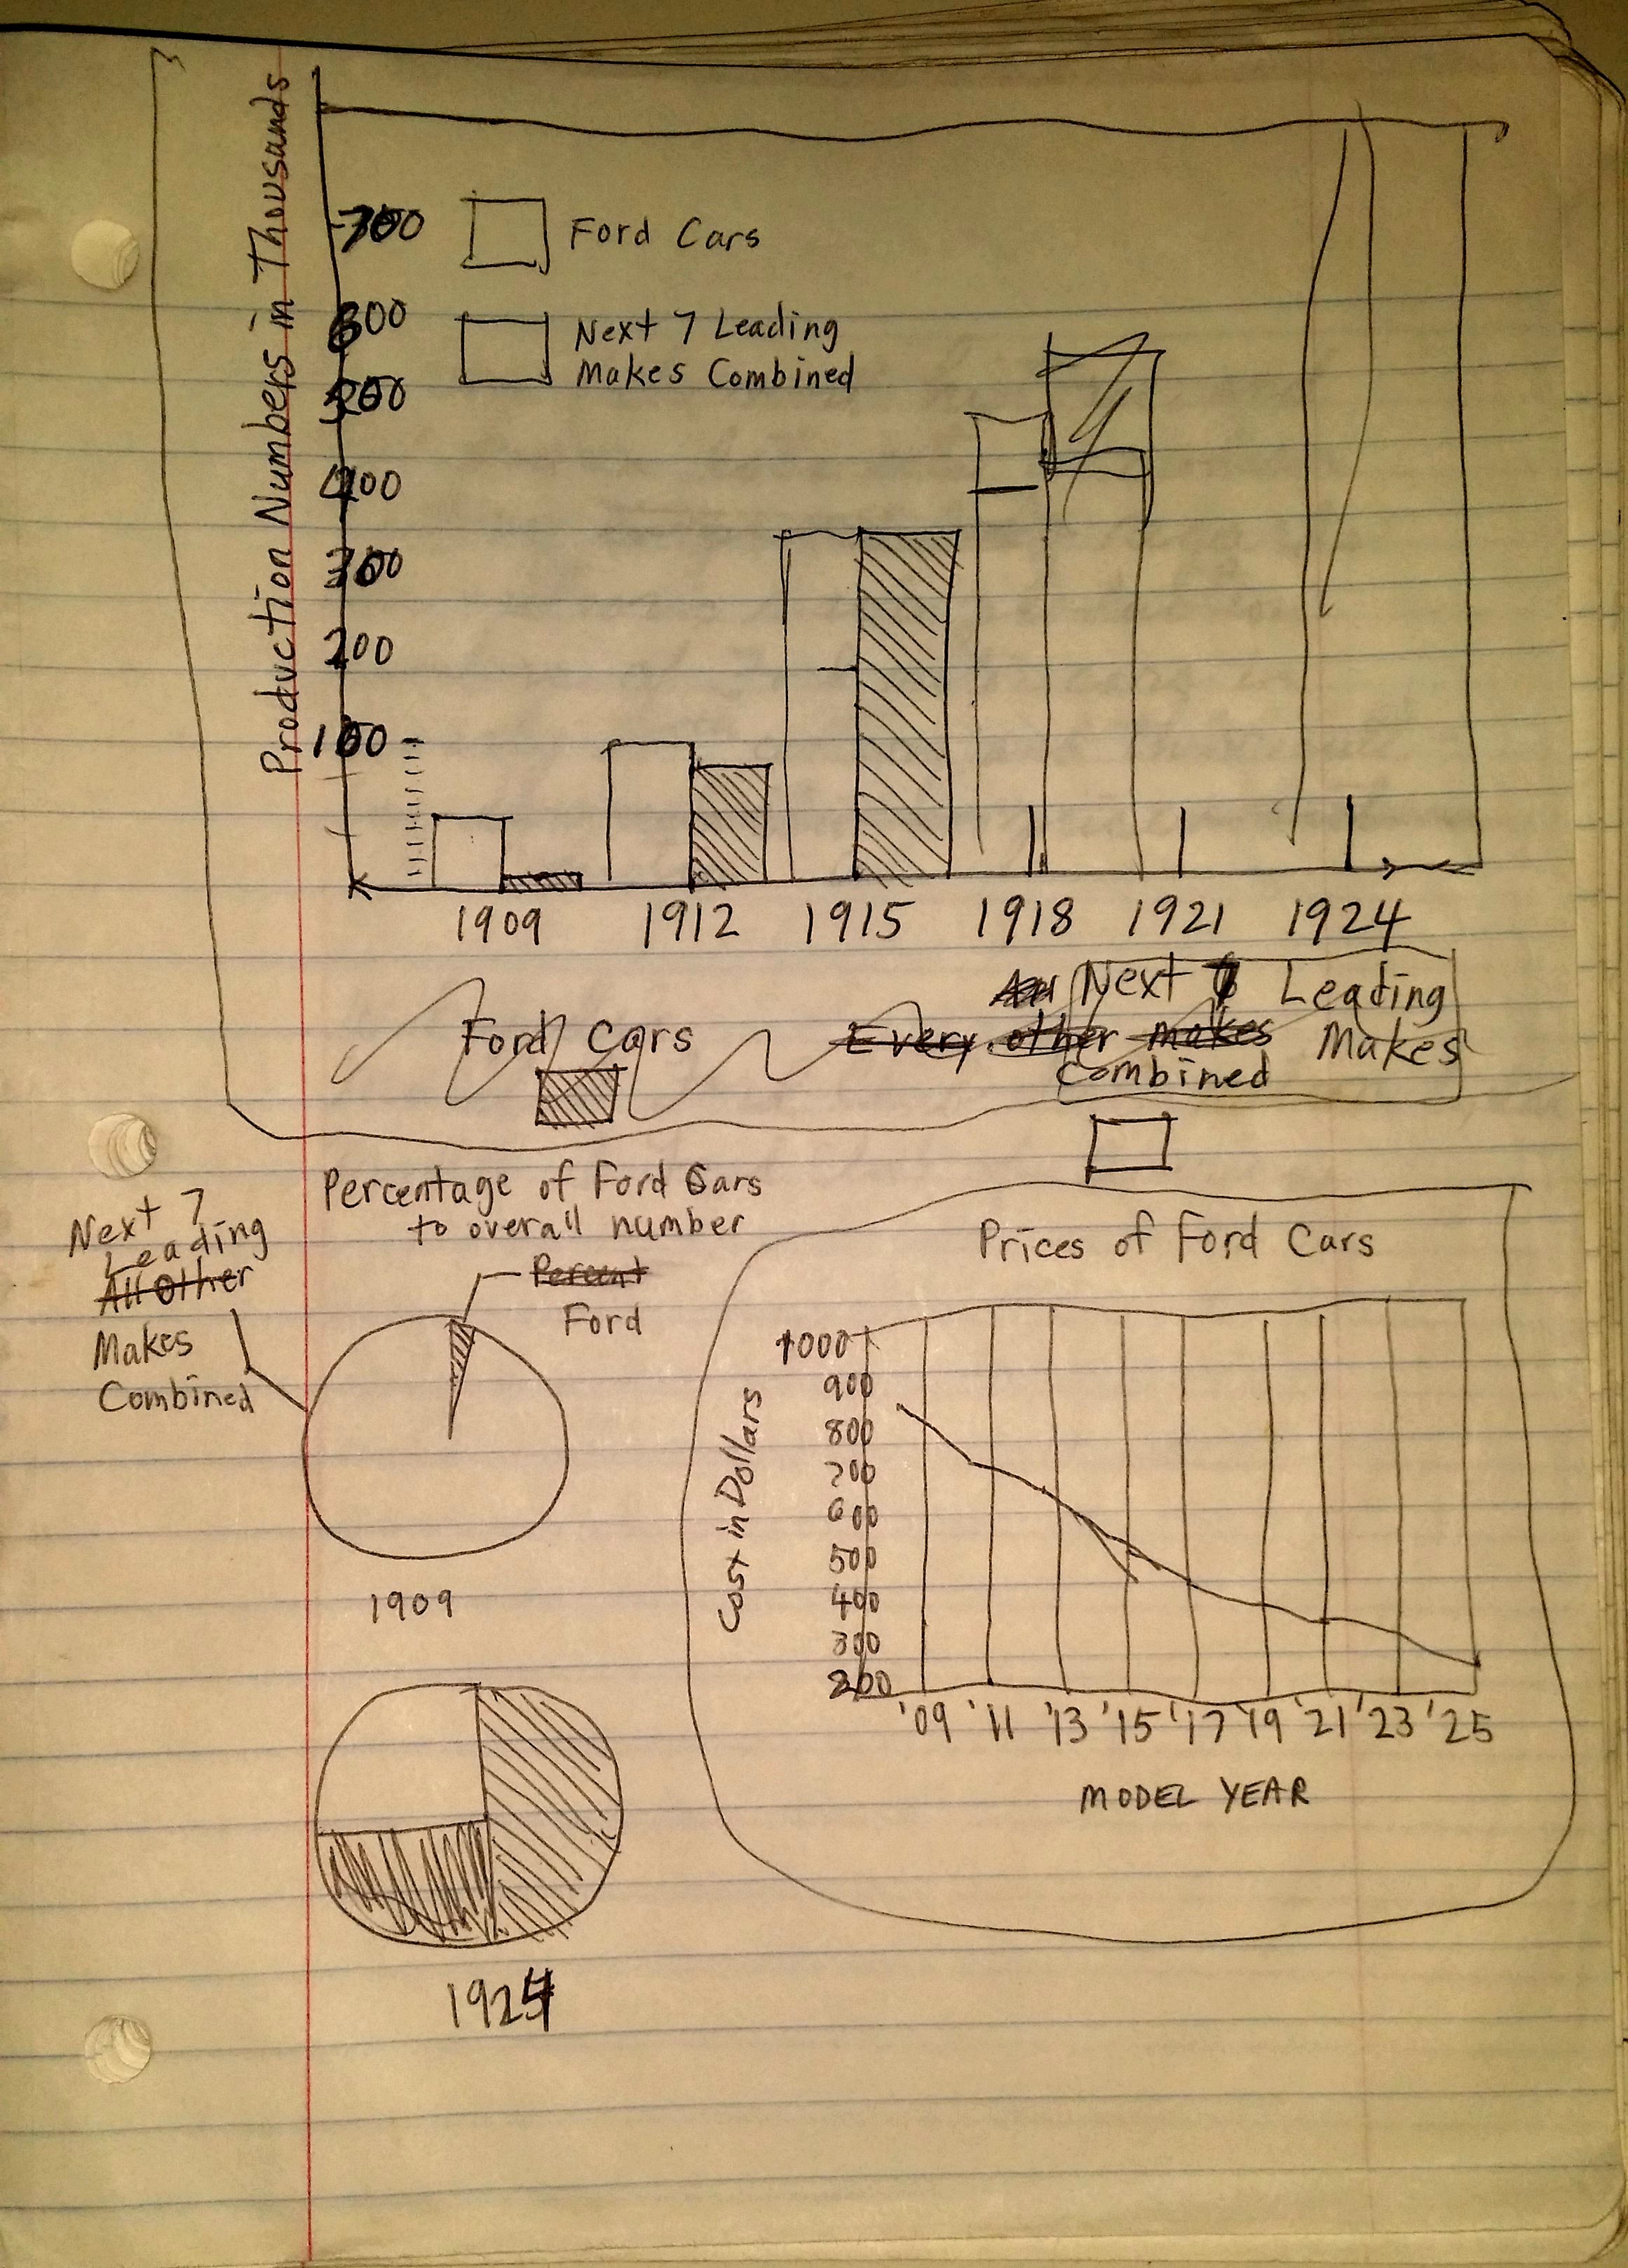 Production Numbers in Thousands
700
Ford Cars
600
Next 7 Leading
Makes Combined
500
400
300
200
100
1909 1912 1915 1918 1921 1924
Next 7 Leading
Ford Cars Every other makes Makes
Combined
Percentage of Ford Cars
to overall number
Next 7
Leading
All Other
Makes
Combined
Percent
Ford
1909
1924
Prices of Ford Cars
Cost in Dollars
1000
900
800
700
600
500
400
300
200
'09 '11 '13 '15 '17 '19 '21 '23 '25
MODEL YEAR